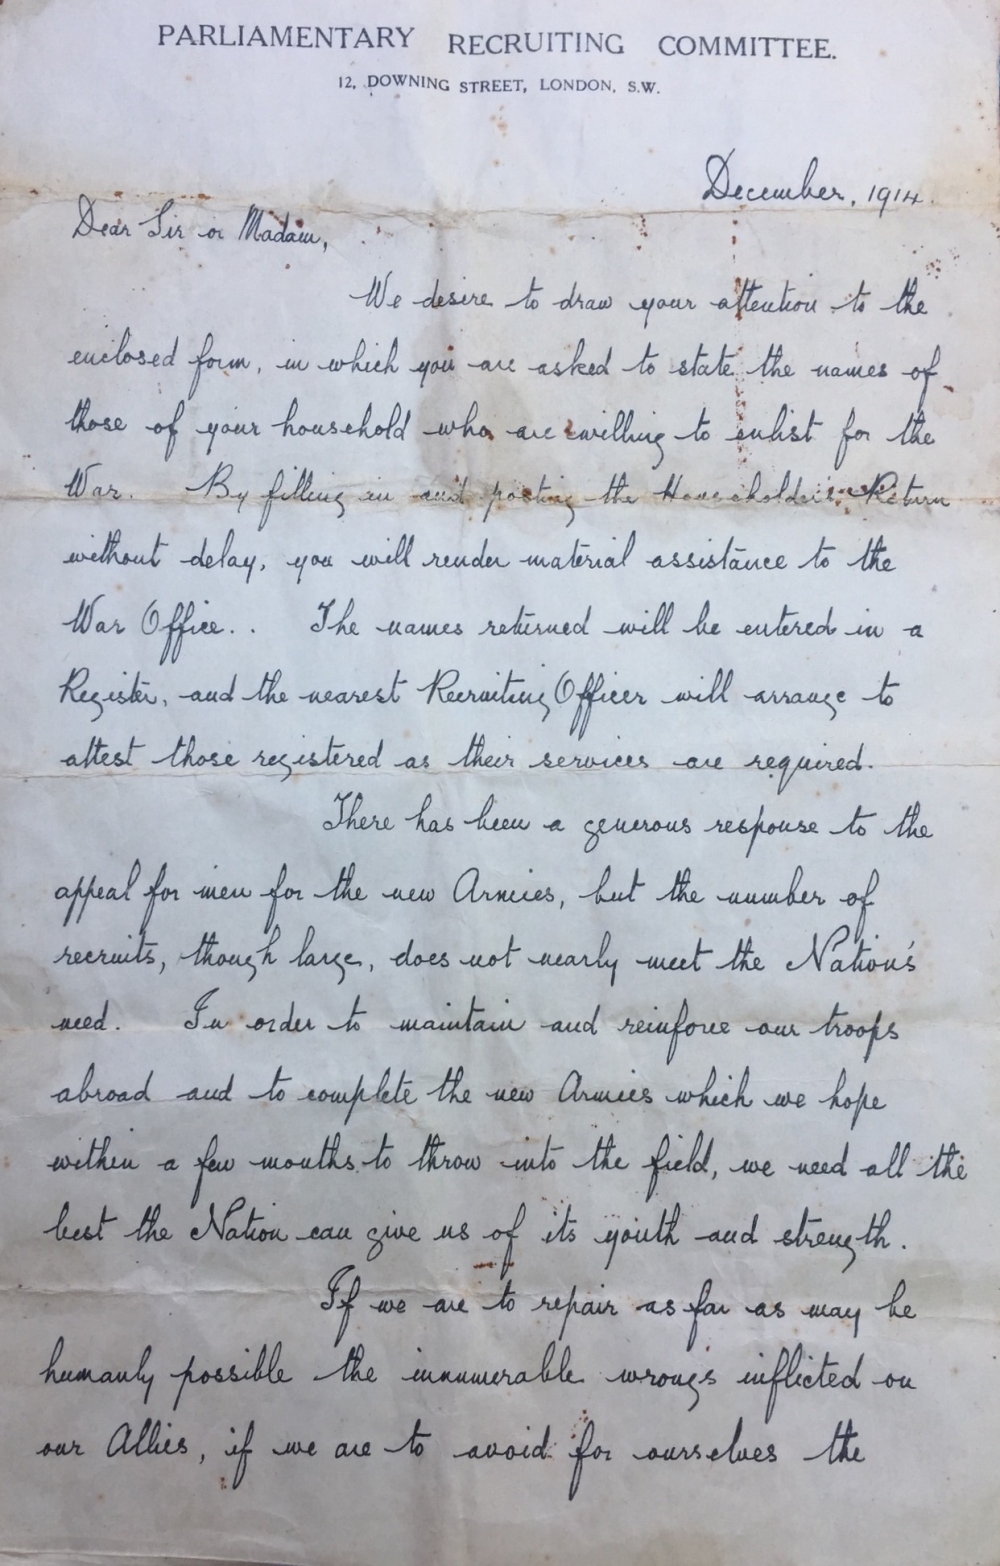 PARLIAMENTARY RECRUITING COMMITTEE.
12, DOWNING STREET, LONDON, S.W.
December, 1914.
Dear Sir or Madam,
We desire to draw your attention to the
enclosed form, in which you are asked to state the names of
those of your household who are willing to enlist for the
War. By filling in and posting the Householder's Return
without delay, you will render material assistance to the
War Office.. The names returned will be entered in a
Register, and the nearest Recruiting Officer will arrange to
attest those registered as their services are required.
There has been a generous response to the
appeal for men for the new Armies, but the number of
recruits, though large, does not nearly meet the Nation's
need. In order to maintain and reinforce our troops
abroad and to complete the new Armies which we hope
within a few months to throw into the field, we need all the
best the Nation can give us of its youth and strength.
If we are to repair as far as may be
humanly possible the innumerable wrongs inflicted on
our Allies, if we are to avoid for ourselves the